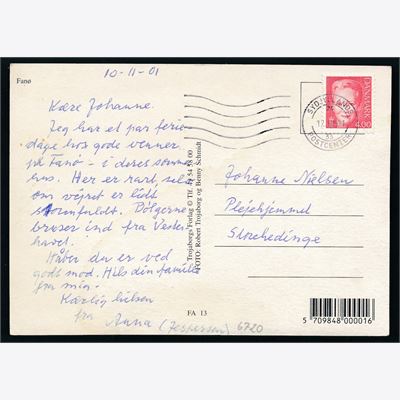 Fanø
10-11-01
Kære Johanne.
Jeg har et par ferie-
dage hos gode venner
på Fanø - i deres sommer
hus. Her er rart, selv
om vejret er lidt
stormfuldt. Bølgerne
bruser ind fra Vester-
havet.
Håber du er ved
godt mod. Hils din familie
fra mig.
Kærlig hilsen
fra Anna (Jespersen) 6720
Trojaborgs Forlag © Tlf. 75 54 58 00
FOTO: Robert Trojaborg og Benny Schmidt
FA 13
POSTCENTER
DANMARK
4.00
Johanne Nielsen
Plejehjemmet
Storehedinge
5 709848 000016